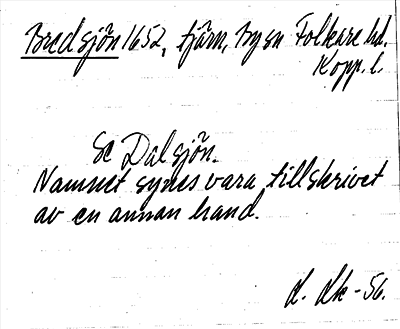 Bredsjön 1652, tjärn, By sn Folkare hd.
Kopp. l.
Se Dalsjön.
Namnet synes vara tillskrivet
av en annan hand.
d. dk -56.